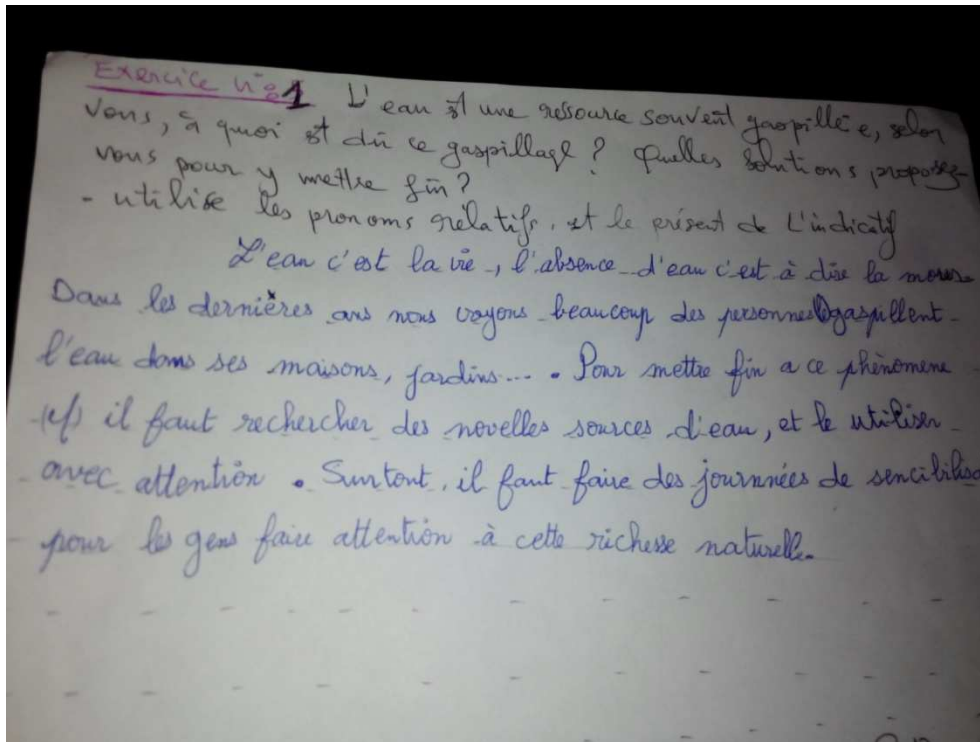 Exercice n°1 L'eau est une ressource souvent gaspillée, selon
vous, à quoi est dû ce gaspillage ? Quelles solutions proposez-
vous pour y mettre fin ?
- utilise les pronoms rélatifs, et le présent de L'indicatif
L'eau c'est la vie, l'absence d'eau c'est à dire la
Dans les dernières ans nous voyons beaucoup des personnes gaspillent
l'eau dans ses maisons, jardins.... Pour mettre fin a ce phènomene
il faut rechercher des novelles sources d'eau, et le utiliser
avec attention. Surtout, il faut faire des journnées de sencibilisa
pour les gens faire attention à cette richesse naturelle.